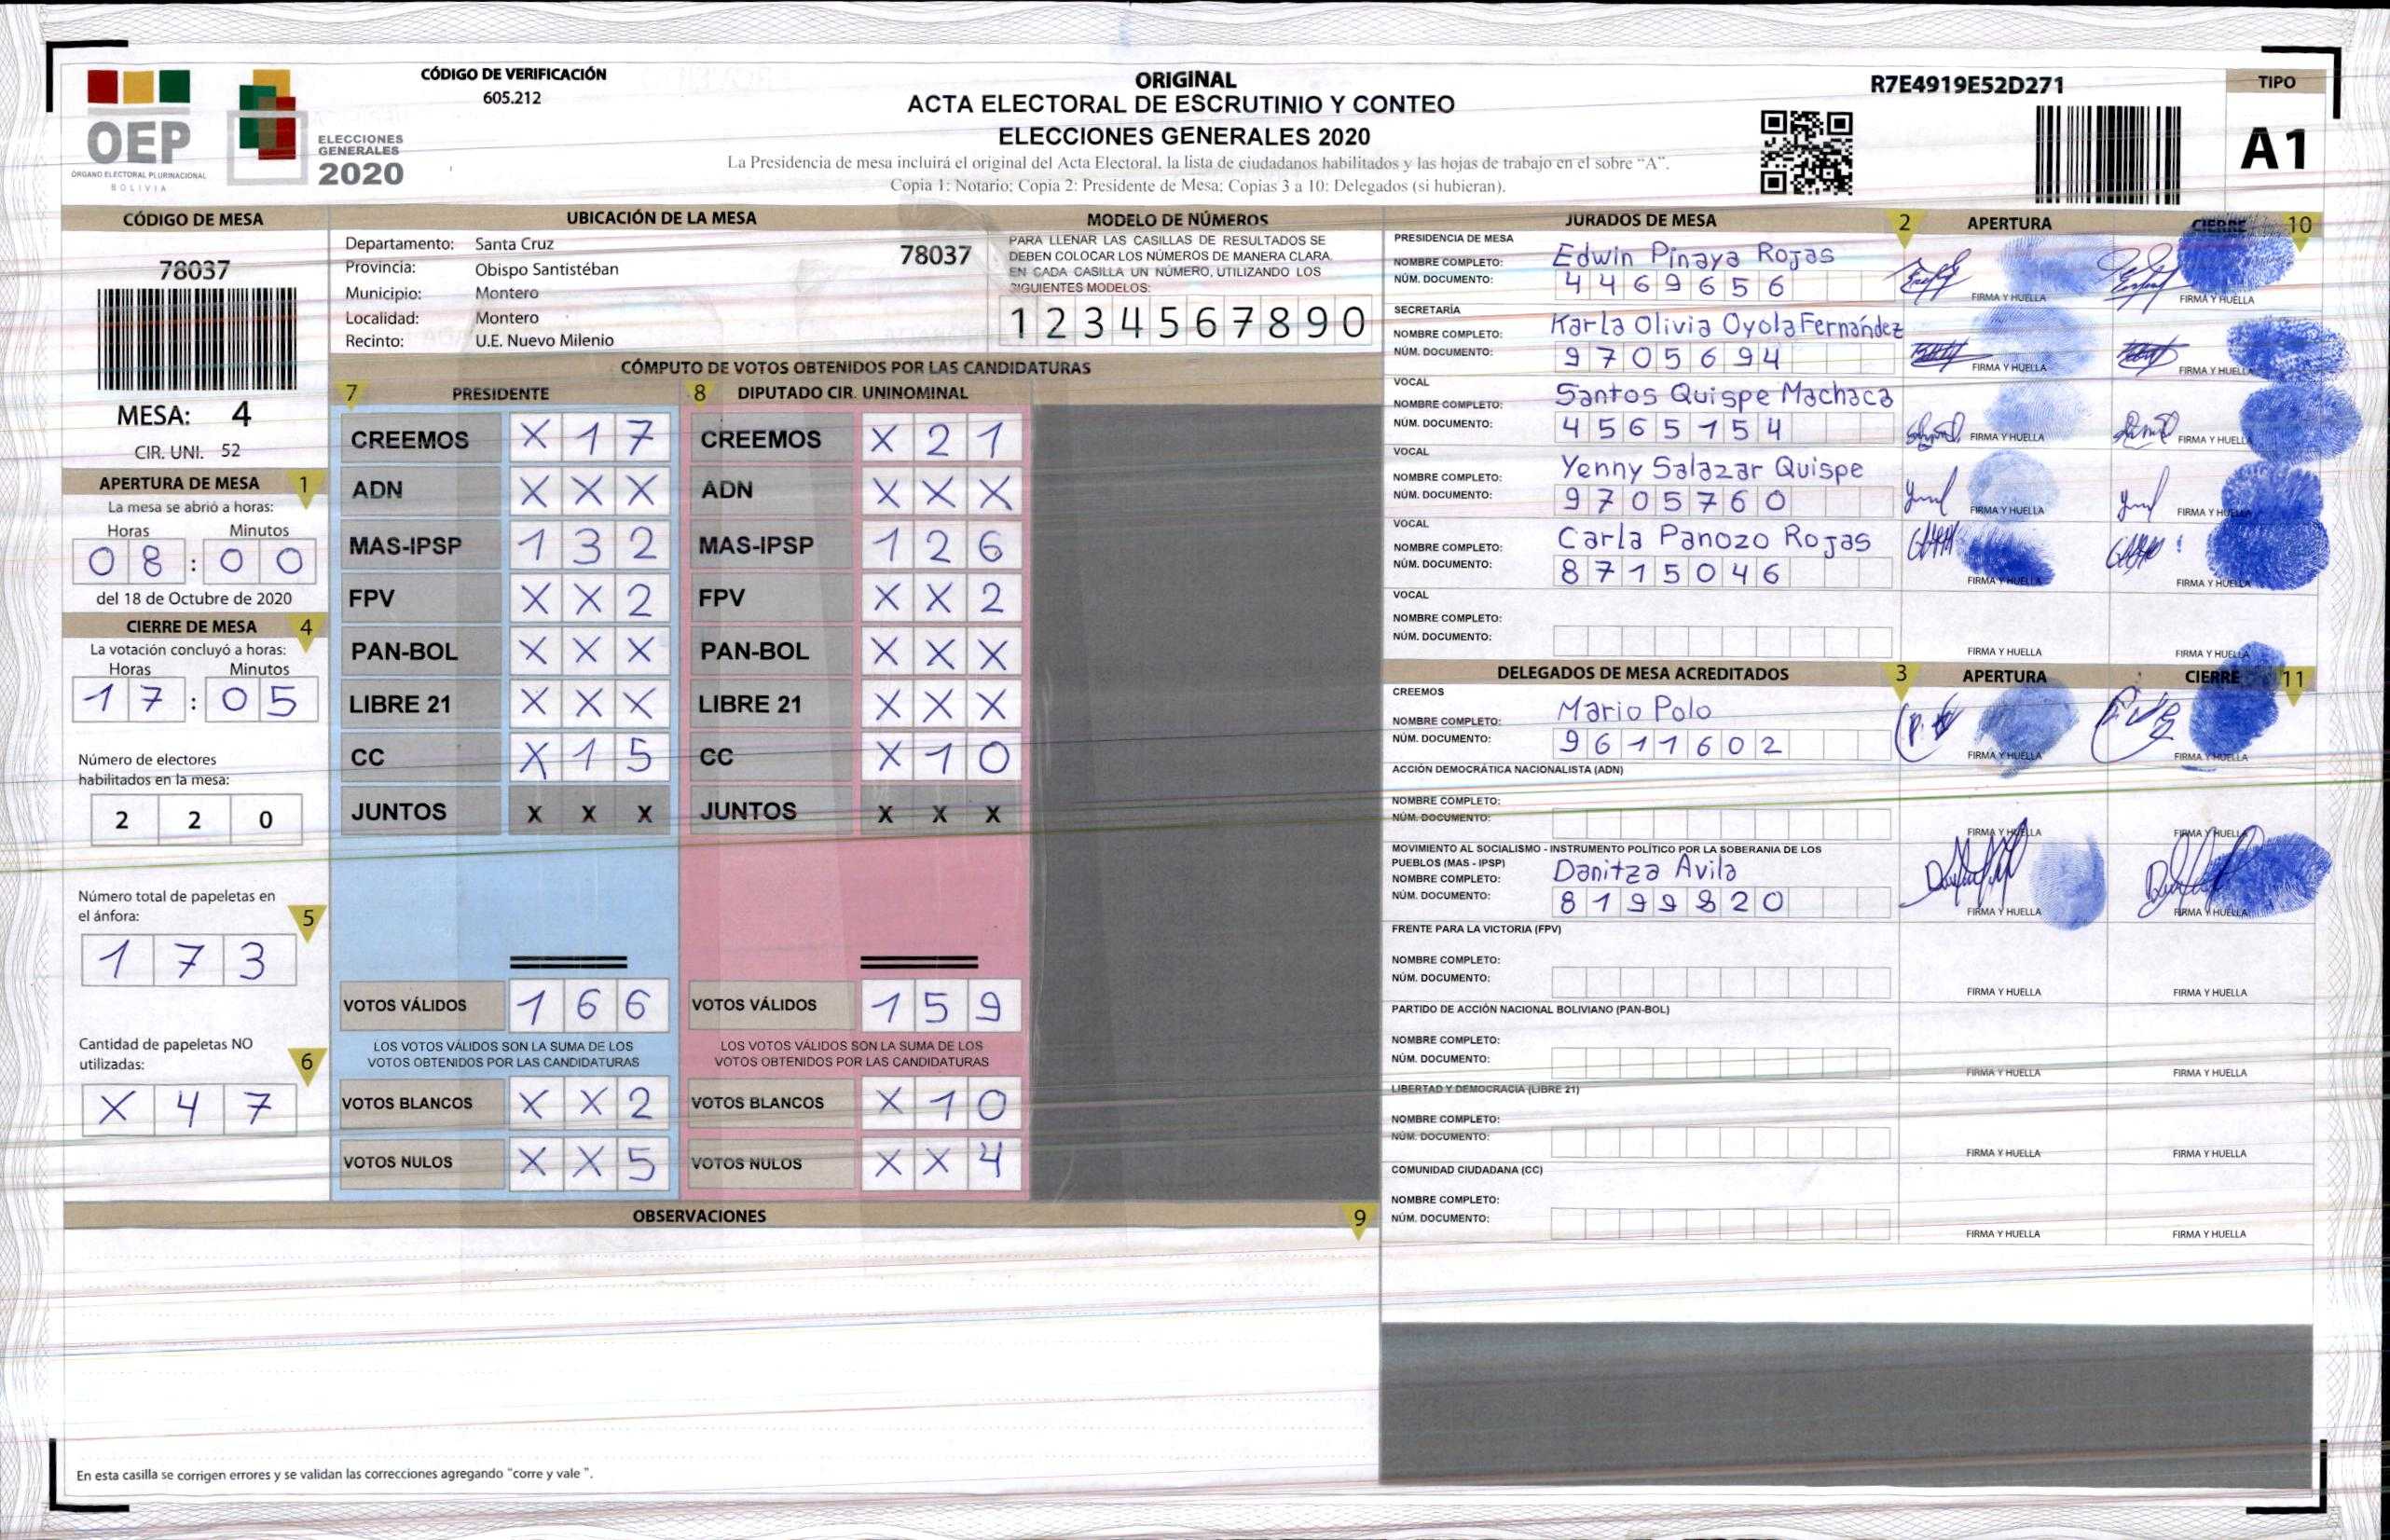 OEP
ÓRGANO ELECTORAL PLURINACIONAL
BOLIVIA
ELECCIONES
GENERALES
2020
CÓDIGO DE VERIFICACIÓN
605.212
ORIGINAL
ACTA ELECTORAL DE ESCRUTINIO Y CONTEO
ELECCIONES GENERALES 2020
La Presidencia de mesa incluirá el original del Acta Electoral, la lista de ciudadanos habilitados y las hojas de trabajo en el sobre “A”.
Copia 1: Notario; Copia 2: Presidente de Mesa; Copias 3 a 10: Delegados (si hubieran).
R7E4919E52D271
TIPO
A1
CÓDIGO DE MESA
78037
MESA: 4
CIR. UNI. 52
APERTURA DE MESA 1
La mesa se abrió a horas:
Horas Minutos
08:00
del 18 de Octubre de 2020
CIERRE DE MESA 4
La votación concluyó a horas:
Horas Minutos
17:05
Número de electores
habilitados en la mesa:
2 2 0
Número total de papeletas en
el ánfora: 5
1 7 3
Cantidad de papeletas NO
utilizadas: 6
X 4 7
UBICACIÓN DE LA MESA
Departamento: Santa Cruz 78037
Provincia: Obispo Santistéban
Municipio: Montero
Localidad: Montero
Recinto: U.E. Nuevo Milenio
MODELO DE NÚMEROS
PARA LLENAR LAS CASILLAS DE RESULTADOS SE
DEBEN COLOCAR LOS NÚMEROS DE MANERA CLARA.
EN CADA CASILLA UN NÚMERO, UTILIZANDO LOS
SIGUIENTES MODELOS:
1 2 3 4 5 6 7 8 9 0
CÓMPUTO DE VOTOS OBTENIDOS POR LAS CANDIDATURAS
7 PRESIDENTE 8 DIPUTADO CIR. UNINOMINAL
CREEMOS X 1 7 CREEMOS X 2 1
ADN X X X ADN X X X
MAS-IPSP 1 3 2 MAS-IPSP 1 2 6
FPV X X 2 FPV X X 2
PAN-BOL X X X PAN-BOL X X X
LIBRE 21 X X X LIBRE 21 X X X
CC X 1 5 CC X 1 0
JUNTOS X X X JUNTOS X X X
VOTOS VÁLIDOS 1 6 6 VOTOS VÁLIDOS 1 5 9
LOS VOTOS VÁLIDOS SON LA SUMA DE LOS LOS VOTOS VÁLIDOS SON LA SUMA DE LOS
VOTOS OBTENIDOS POR LAS CANDIDATURAS VOTOS OBTENIDOS POR LAS CANDIDATURAS
VOTOS BLANCOS X X 2 VOTOS BLANCOS X 1 0
VOTOS NULOS X X 5 VOTOS NULOS X X 4
OBSERVACIONES 9
En esta casilla se corrigen errores y se validan las correcciones agregando "corre y vale ".
JURADOS DE MESA 2 APERTURA CIERRE 10
PRESIDENCIA DE MESA
NOMBRE COMPLETO: Edwin Pinaya Rojas
NÚM. DOCUMENTO: 4469656
FIRMA Y HUELLA FIRMA Y HUELLA
SECRETARÍA
NOMBRE COMPLETO: Karla Olivia Oyola Fernández
NÚM. DOCUMENTO: 9705694
FIRMA Y HUELLA FIRMA Y HUELLA
VOCAL
NOMBRE COMPLETO: Santos Quispe Machaca
NÚM. DOCUMENTO: 4565154
FIRMA Y HUELLA FIRMA Y HUELLA
VOCAL
NOMBRE COMPLETO: Yenny Salazar Quispe
NÚM. DOCUMENTO: 9705760
FIRMA Y HUELLA FIRMA Y HUELLA
VOCAL
NOMBRE COMPLETO: Carla Panozo Rojas
NÚM. DOCUMENTO: 8715046
FIRMA Y HUELLA FIRMA Y HUELLA
VOCAL
NOMBRE COMPLETO:
NÚM. DOCUMENTO:
FIRMA Y HUELLA FIRMA Y HUELLA
DELEGADOS DE MESA ACREDITADOS 3 APERTURA CIERRE 11
CREEMOS
NOMBRE COMPLETO: Mario Polo
NÚM. DOCUMENTO: 9611602
FIRMA Y HUELLA FIRMA Y HUELLA
ACCIÓN DEMOCRÁTICA NACIONALISTA (ADN)
NOMBRE COMPLETO:
NÚM. DOCUMENTO:
FIRMA Y HUELLA FIRMA Y HUELLA
MOVIMIENTO AL SOCIALISMO - INSTRUMENTO POLÍTICO POR LA SOBERANIA DE LOS
PUEBLOS (MAS - IPSP)
NOMBRE COMPLETO: Danitza Avila
NÚM. DOCUMENTO: 8199820
FIRMA Y HUELLA FIRMA Y HUELLA
FRENTE PARA LA VICTORIA (FPV)
NOMBRE COMPLETO:
NÚM. DOCUMENTO:
FIRMA Y HUELLA FIRMA Y HUELLA
PARTIDO DE ACCIÓN NACIONAL BOLIVIANO (PAN-BOL)
NOMBRE COMPLETO:
NÚM. DOCUMENTO:
FIRMA Y HUELLA FIRMA Y HUELLA
LIBERTAD Y DEMOCRACIA (LIBRE 21)
NOMBRE COMPLETO:
NÚM. DOCUMENTO:
FIRMA Y HUELLA FIRMA Y HUELLA
COMUNIDAD CIUDADANA (CC)
NOMBRE COMPLETO:
NÚM. DOCUMENTO:
FIRMA Y HUELLA FIRMA Y HUELLA